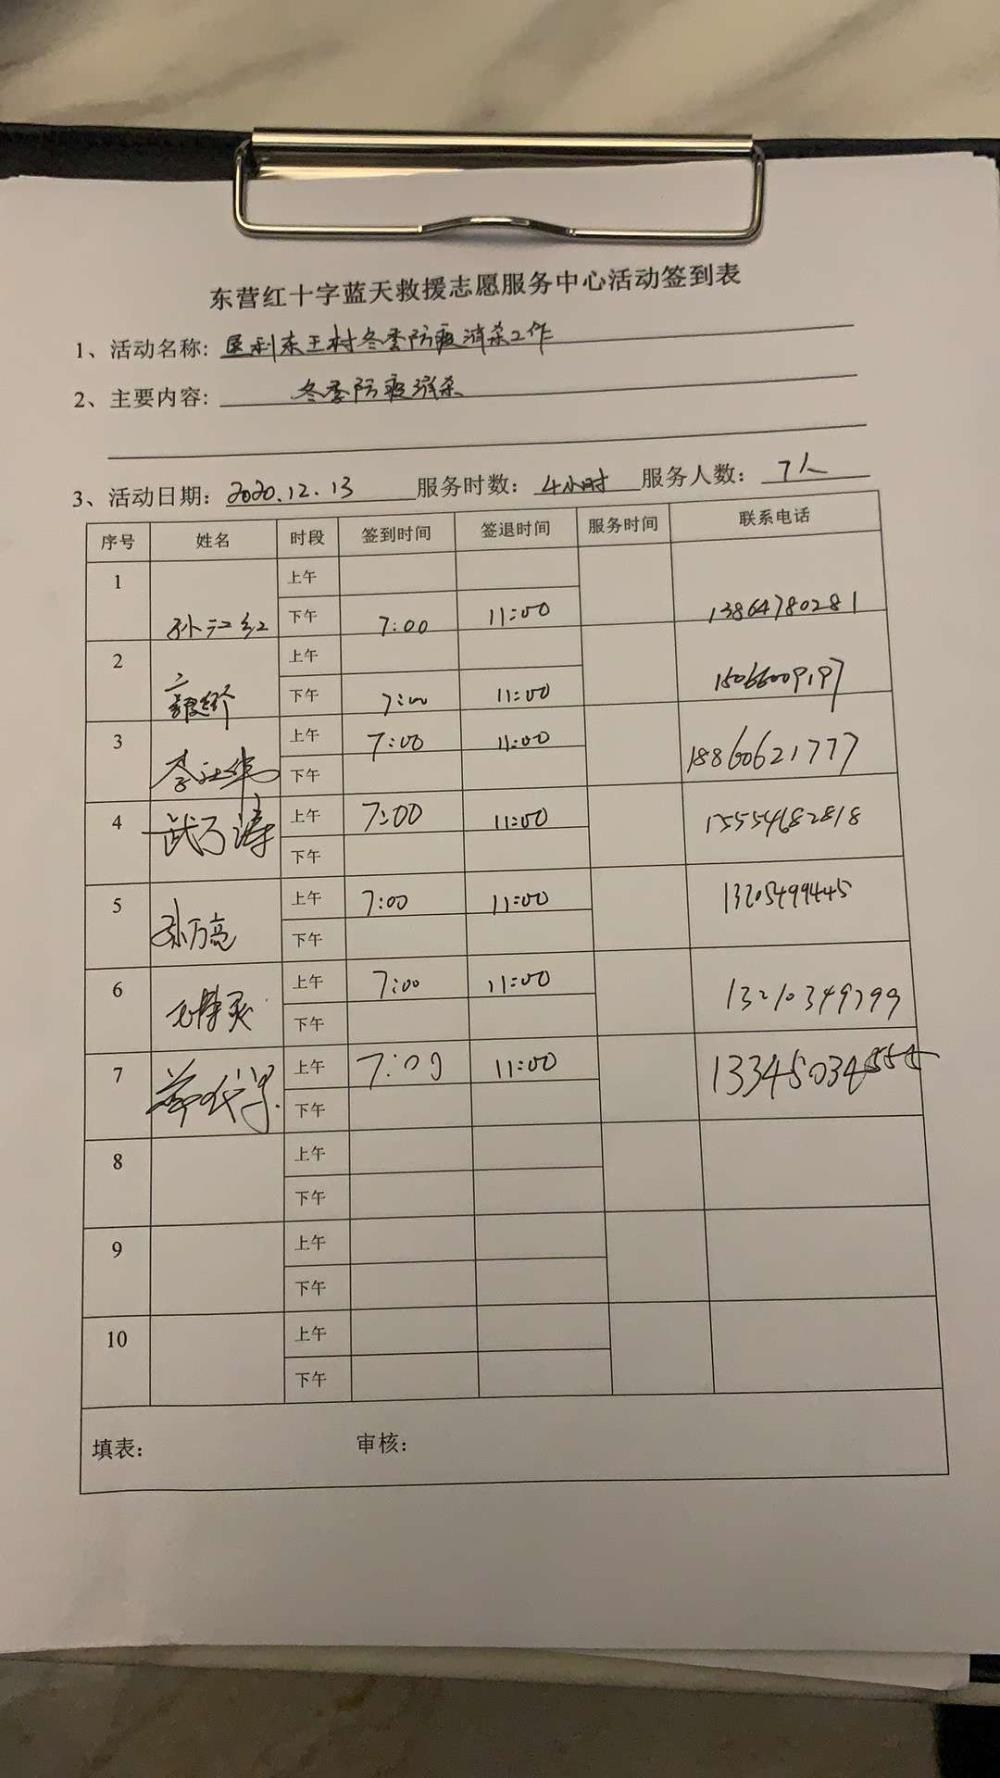 东营红十字蓝天救援志愿服务中心活动签到表
1、活动名称: 垦利东王村冬季防疫消杀工作
2、主要内容: 冬季防疫消杀
3、活动日期: 2020.12.13 服务时数: 4小时 服务人数: 7人
序号 姓名 时段 签到时间 签退时间 服务时间 联系电话
1 孙江红 上午
下午 7:00 11:00 13864780281
2 上午
下午 7:00 11:00 15066009197
3 上午 7:00 11:00 18860621777
下午
4 武乃涛 上午 7:00 11:00 15554682818
下午
5 孙万亮 上午 7:00 11:00 13205499445
下午
6 上午 7:00 11:00
下午
7 上午 7:00 11:00
下午
8 上午
下午
9 上午
下午
10 上午
下午
填表: 审核: